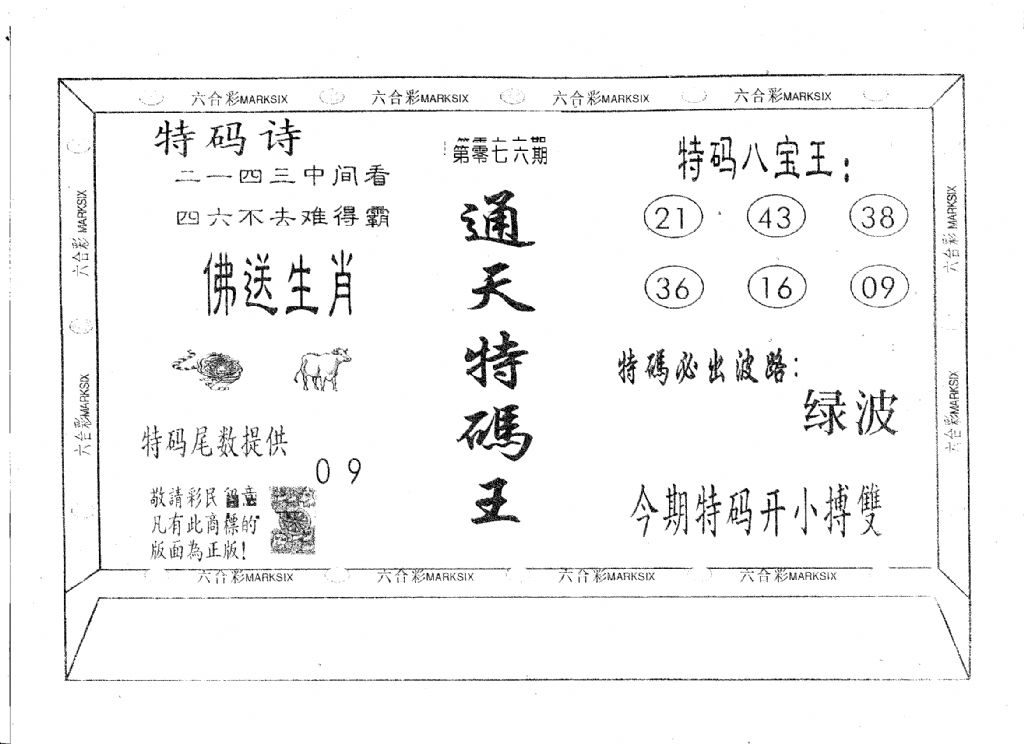 六合彩MARKSIX 六合彩MARKSIX 六合彩MARKSIX 六合彩MARKSIX
六合彩 MARKSIX
六合彩MARKSIX
特码诗
二一四三中间看
四六不去难得霸
佛送生肖
特码尾数提供
0 9
敬請彩民留意
凡有此商標的
版面為正版!
第零七六期
通天特碼王
特码八宝王:
21 43 38
36 16 09
特碼必出波路:
绿波
今期特码开小搏雙
六合彩 MARKSIX
六合彩MARKSIX
六合彩MARKSIX 六合彩MARKSIX 六合彩MARKSIX 六合彩MARKSIX